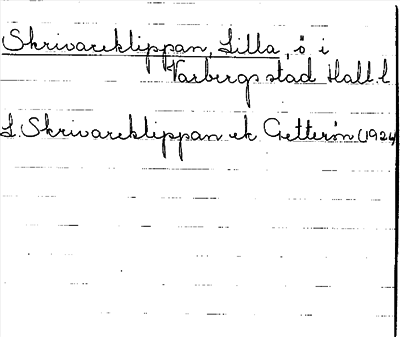 Skrivareklippan, Lilla, ö i
Varbergs stad Hall. l.
L. Skrivareklippan ek Getterön (1924)